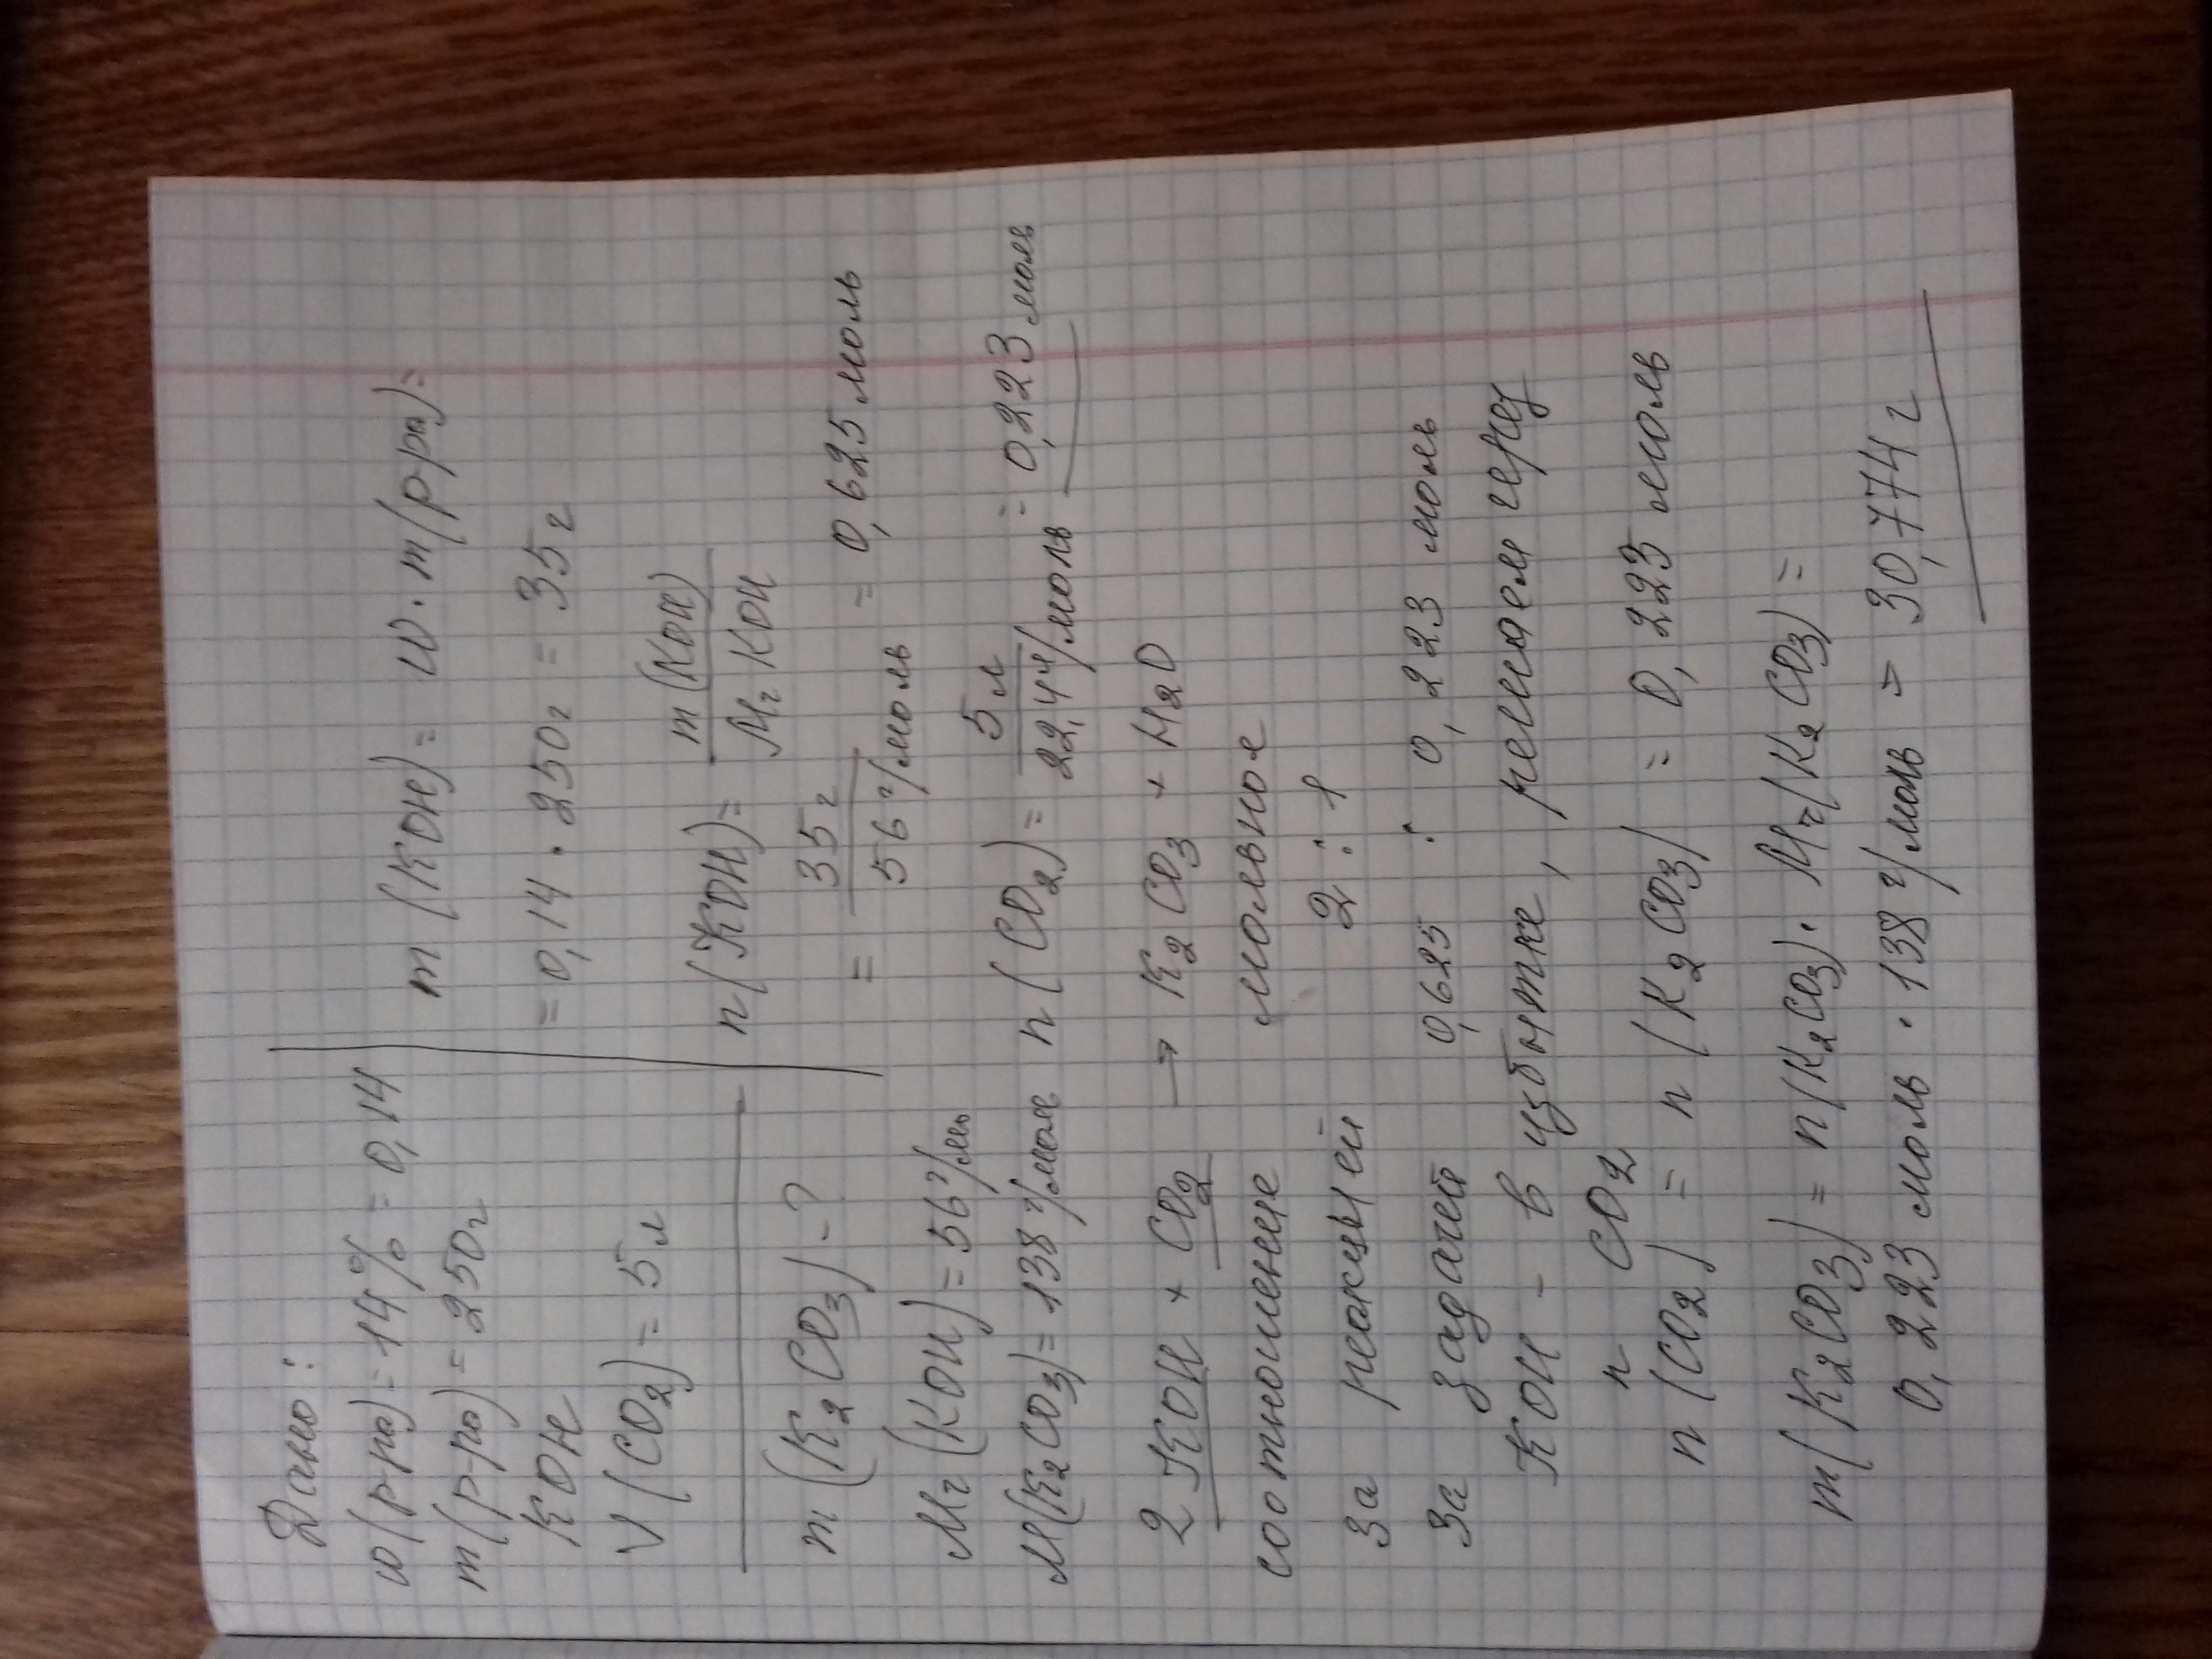 Дано:
w(р-ра)=14% = 0,14
m(р-ра) = 250г
KOH
V(CO2) = 5л
m(K2CO3) - ?
Mr(KOH) = 56 г/мль
M(K2CO3) = 138 г/моль
m(KOH) = w · m(р-ра) =
= 0,14 · 250г = 35г
n(KOH) = m(KOH) / Mr KOH
= 35г / 56 г/моль = 0,625 моль
n(CO2) = 5л / 22,4 л/моль = 0,223 моль
2KOH + CO2 → K2CO3 + H2O
соотношение мольное
За реакцией 2 : 1
За задачей 0,625 : 0,223 моль
KOH - в избытке, решаем через
n CO2
n(CO2) = n(K2CO3) = 0,223 моль
m(K2CO3) = n(K2CO3) · Mr(K2CO3) =
0,223 моль · 138 г/моль = 30,774 г